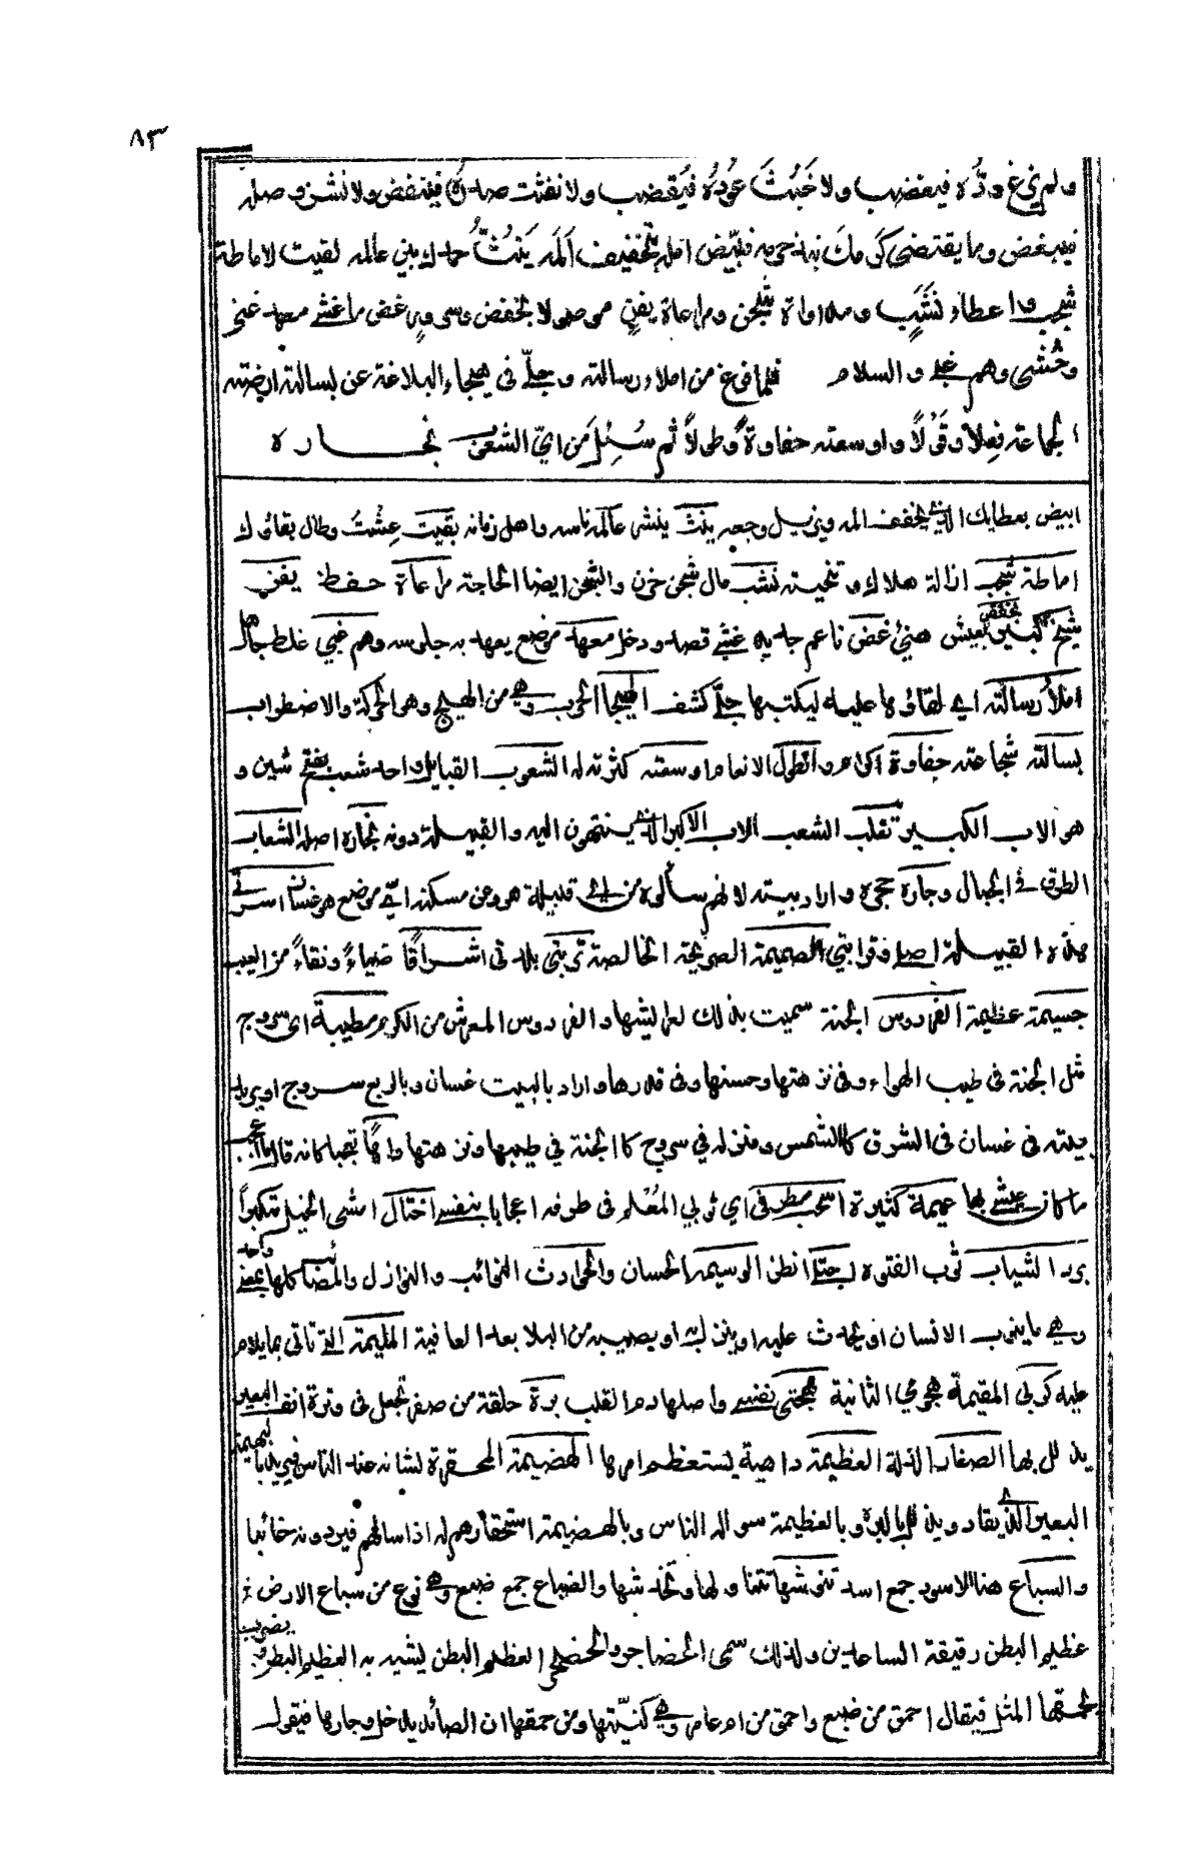 ٨٣
ولم يزغ ودّه فيغضب ولا خَبُثَ عُودُه فيُقضب ولا نفث صدره فينفض ولا نشز وصله
فيبغض وما يقتضي كرمك نبذ حرمه فبيّض امله بتخفيف المه يَنُثُّ حمدك بين عالمه بقيت لاماطة
شجب واعطاء نَشَبٍ ومداواة شجن ومراعاة يفنٍ موصولا بخفض وسرور غض ما غشى معهد غني
وخُشي وهم غبي والسلام فلما فرغ من املاء رسالته وجلّى في هيجاء البلاغة عن بسالته ارضته
الجماعة فِعلاً وقَوْلاً واوسعته حفاوةً وطولاً ثم سُئِلَ من ايّ الشعوب نجاره
ابيض بعطايك الذي يخفف المه ويزيل وجعه ينث ينشي عالمه ناسه واهل زمانه بقيت عِشْتَ وطال بقاؤك
اماطة شجب ازالة هلاك وتنحيته نشب مال شجن حزن والشجن ايضا الحاجة مراعاة حفظ يفن
شيخ كبير بخفض بعيش هنيّ غض ناعم جديد غشي قصد ودخل معهد موضع يعهد به جلوسه وهم غبي غلط جاهل
املأ رسالته اي القاؤها عليه ليكتبها جلّى كشف الهيجا الحرب وهي من الهيج وهو الحركة والاضطراب
بسالته شجاعته حفاوة اكرام والطول الانعام اوسعته كثرته له الشعوب القبايل واحد شعب بفتح شين و
هو الاب الكبير ثعلب الشعب الاب الاكبر الذي ينتهون اليه والقبيلة دونه نجاره اصله الشعاب
الطرق في الجبال وجاره حجره واراد بيته لانهم سألوه من اي قبيلة هو وعن مسكنه اي موضع هو غسان اسرتي
هذه القبيلة اصلي وقرابتي الصميمة الصريحة الخالصة تربتي بلدتي اشراقًا ضياءً ونقاءً من العيب
جسيمة عظيمة الفردوس الجنة سميت بذلك لعرايشها والفردوس المعرش من الكروم مطيبة اي سروج
مثل الجنة في طيب الهواء وفي نزهتها وحسنها وفي قدرها واراد بالبيت غسان وبالربع سروج او يريد
بيته في غسان في الشرق كالشمس ومنزله في سروج كالجنة في طيبها ونزهتها واهًا تعجبا كانه قال ما اعجب
ما كان عيشي لها عميمة كثيرة اسحب مطرفي اي ثوبي المُعْلم في طرفه اعجابا بنفسي اختال امشي الخيل تكبرًا
برد الشباب ثوب الفتوة اجتلى انظر الوسيمة الحسان والحوادث النوائب والنوازل والمصائب كلها بمعنى واحد
وهي ما ينوب الانسان او يحدث عليه او ينزل به او يصيبه من البلا بعد العافية المليمة التي تاتي بما يلام
عليه كربي المقيمة همومي الثانية مهجتي نفسي واصلها دم القلب برة حلقة من صفر تجعل في وترة انف البعير
يذلل بها الصغار الذلة العظيمة داهية يستعظم امرها الهضيمة المحقرة لشانه عند الناس في
البعير الذي يقاد ويذلل بالبرة وبالعظيمة سواله الناس وبالهضيمة استحقارهم له اذا سالهم فيردونه خائبا
والسباع هنا الاسود جمع اسد تنوشها تتناولها وتخدشها والضباع جمع ضبع وهي نوع من سباع الارض
عظيم البطن رقيقة الساعدين ولذلك سمى الحضاجر والحضجر العظيم البطن ليشبه به العظيم البطن ويضرب
بحمقها المثل فيقال احمق من ضبع واحمق من ام عامر وهي كنيّتها ومن حمقها ان الصائد يدخل وجارها فيقول